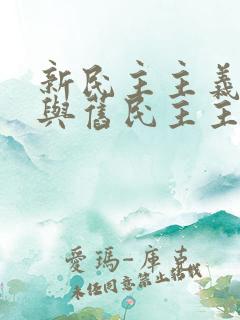 新民主主義
與舊民主主
愛瑪-庫克
未經同意禁止轉載